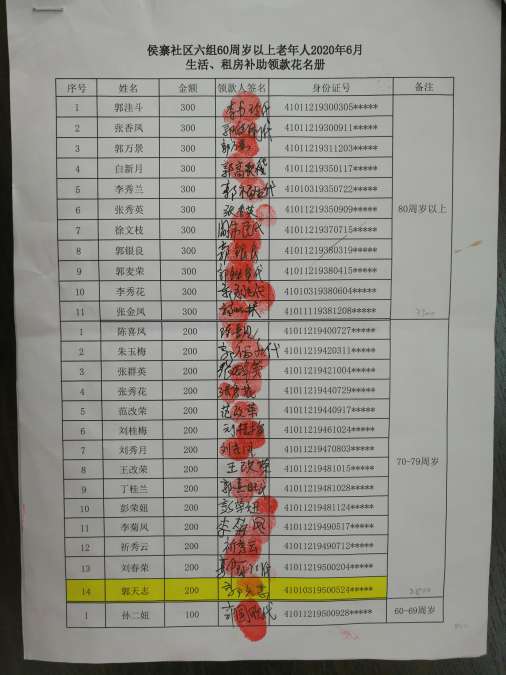 侯寨社区六组60周岁以上老年人2020年6月
生活、租房补助领款花名册
序号 姓名 金额 领款人签名 身份证号 备注
1 郭洼斗 300 41011219300305*****
2 张香凤 300 41011219300911*****
3 郭万景 300 郭万景 41011219311203*****
4 白新月 300 41011219350117*****
5 李秀兰 300 41010319350722*****
6 张秀英 300 张秀英 41011219350909*****
7 徐文枝 300 41011219370715*****
8 郭银良 300 41011219380319*****
9 郭麦荣 300 41011219380415*****
10 李秀花 300 41010319380604*****
11 张金凤 300 41011119381208*****
80周岁以上
1 陈喜凤 200 41011219400727*****
2 朱玉梅 200 41011219420311*****
3 张群英 200 41011219421004*****
4 张秀花 200 张秀花 41011219440729*****
5 范改荣 200 范改荣 41011219440917*****
6 刘桂梅 200 刘桂梅 41011219461024*****
7 刘秀月 200 刘秀月 41011219470803*****
8 王改荣 200 王改荣 41011219481015*****
9 丁桂兰 200 41011219481028*****
10 彭荣妞 200 彭荣妞 41011219481124*****
11 李菊凤 200 李菊凤 41011219490517*****
12 祈秀云 200 祈秀云 41011219490712*****
13 刘春荣 200 41011219500204*****
14 郭天志 200 郭天志 41010319500524*****
70-79周岁
1 孙二妞 100 41011219500928***** 60-69周岁